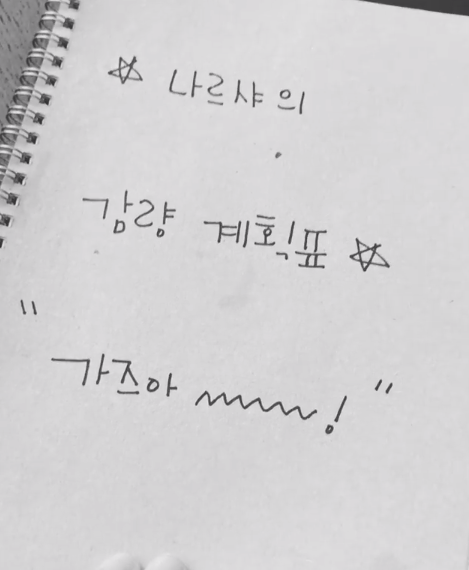 ☆ 나르샤의
감량 계획표 ☆
"가즈아 ~~~~~! "